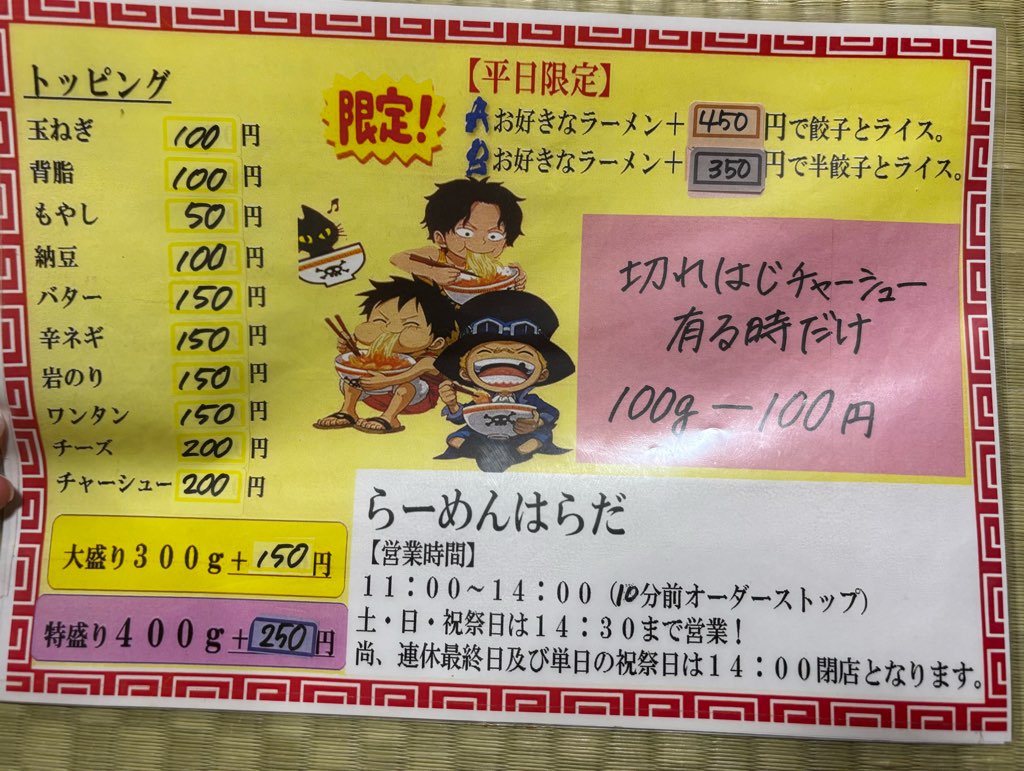 トッピング
玉ねぎ 100円
背脂 100円
もやし 50円
納豆 100円
バター 150円
辛ネギ 150円
岩のり 150円
ワンタン 150円
チーズ 200円
チャーシュー 200円
大盛り300g+150円
特盛り400g+250円
限定!
【平日限定】
A お好きなラーメン+450円で餃子とライス。
B お好きなラーメン+350円で半餃子とライス。
切れはじチャーシュー
有る時だけ
100g―100円
らーめんはらだ
【営業時間】
11:00~14:00(10分前オーダーストップ)
土・日・祝祭日は14:30まで営業!
尚、連休最終日及び単日の祝祭日は14:00閉店となります。